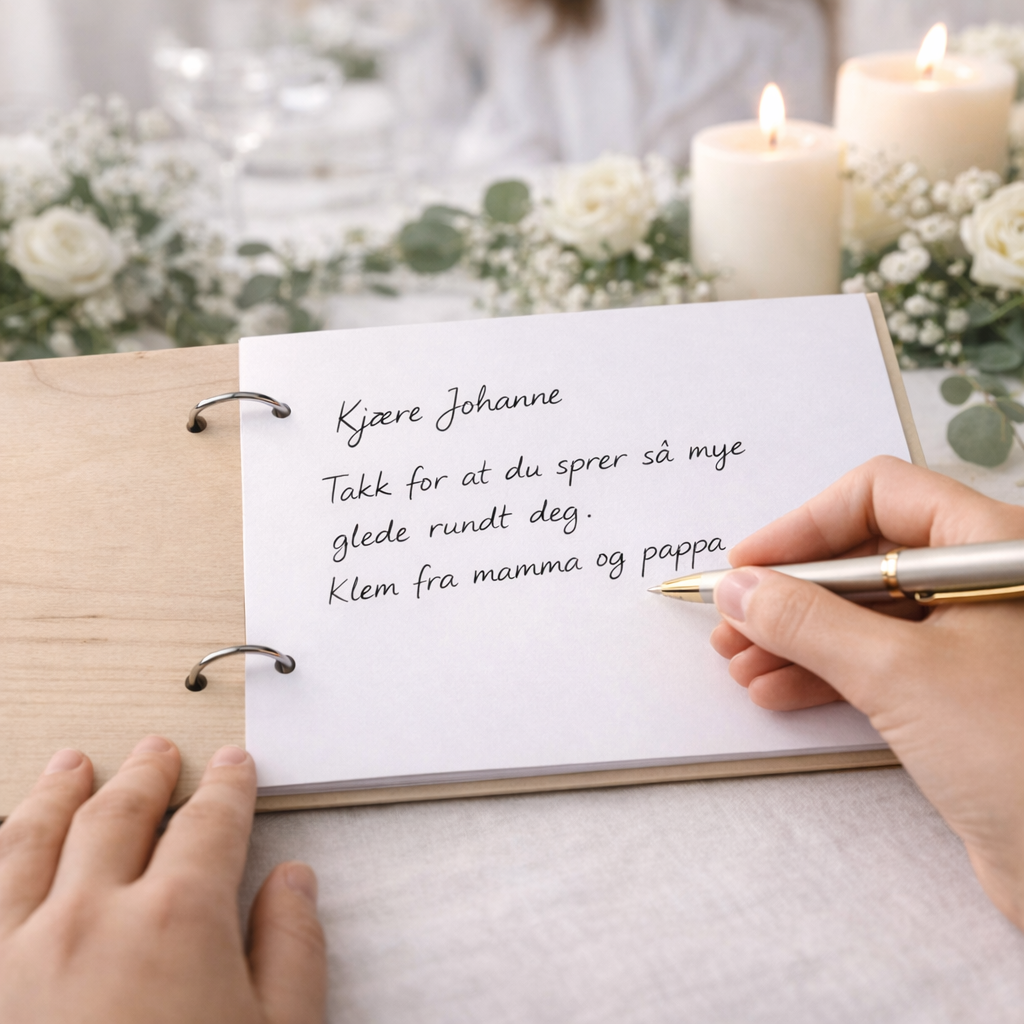 Kjære Johanne
Takk for at du sprer så mye
glede rundt deg.
Klem fra mamma og pappa